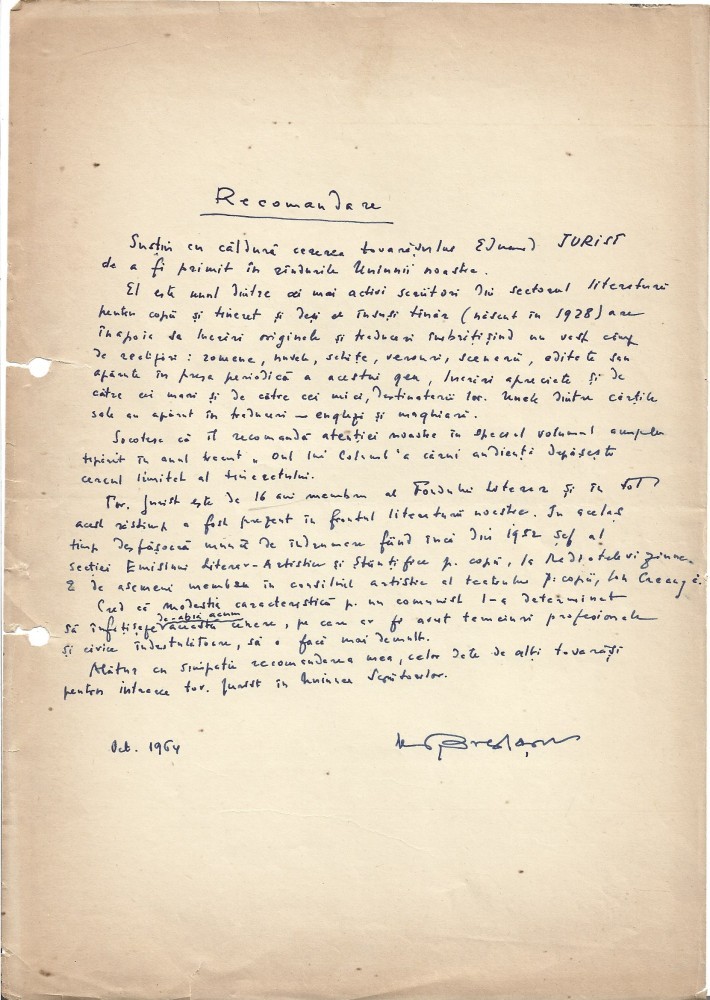 Recomandare
Susțin cu căldură cererea tovarășului Eduard JURIST
de a fi primit în rîndurile Uniunii noastre.
El este unul dintre cei mai activi scriitori din sectorul literaturii
pentru copii și tineret și deși el însuși tînăr (născut în 1928) are
înapoia sa lucrări originale și traduceri îmbrățișînd un vast cîmp
de realizări: romane, nuvele, schițe, versuri, scenarii, editate sau
apărute în presa periodică a acestui gen, lucrări apreciate și de
către cei mari și de către cei mici, destinatarii lor. Unele dintre cărțile
sale au apărut în traduceri — engleze și maghiare.
Socotesc că îl recomandă atenției noastre în special volumul
tipărit în anul trecut „Oul lui Columb" a cărui audiență depășește
cercul limitat al tineretului.
Tov. Jurist este de 16 ani membru al Fondului Literar și în tot
acest răstimp a fost prezent în frontul literaturii noastre. În același
timp desfășoară muncă de îndrumare fiind încă din 1952 șef al
secției Emisiuni Literar-Artistice și Științifice p. copii, la Radioteleviziune.
E de asemeni membru în consiliul artistic al teatrului p. copii, Ion Creangă.
Cred că modestia caracteristică p. un comunist l-a determinat
de-abia acum
să înfățișeze această cerere, pe care ar fi avut temeiuri profesionale
și civice îndestulătoare, să o facă mai demult.
Alătur cu simpatie recomandarea mea, celor date de alți tovarăși
pentru intrarea tov. Jurist în Uniunea Scriitorilor.
Oct. 1964